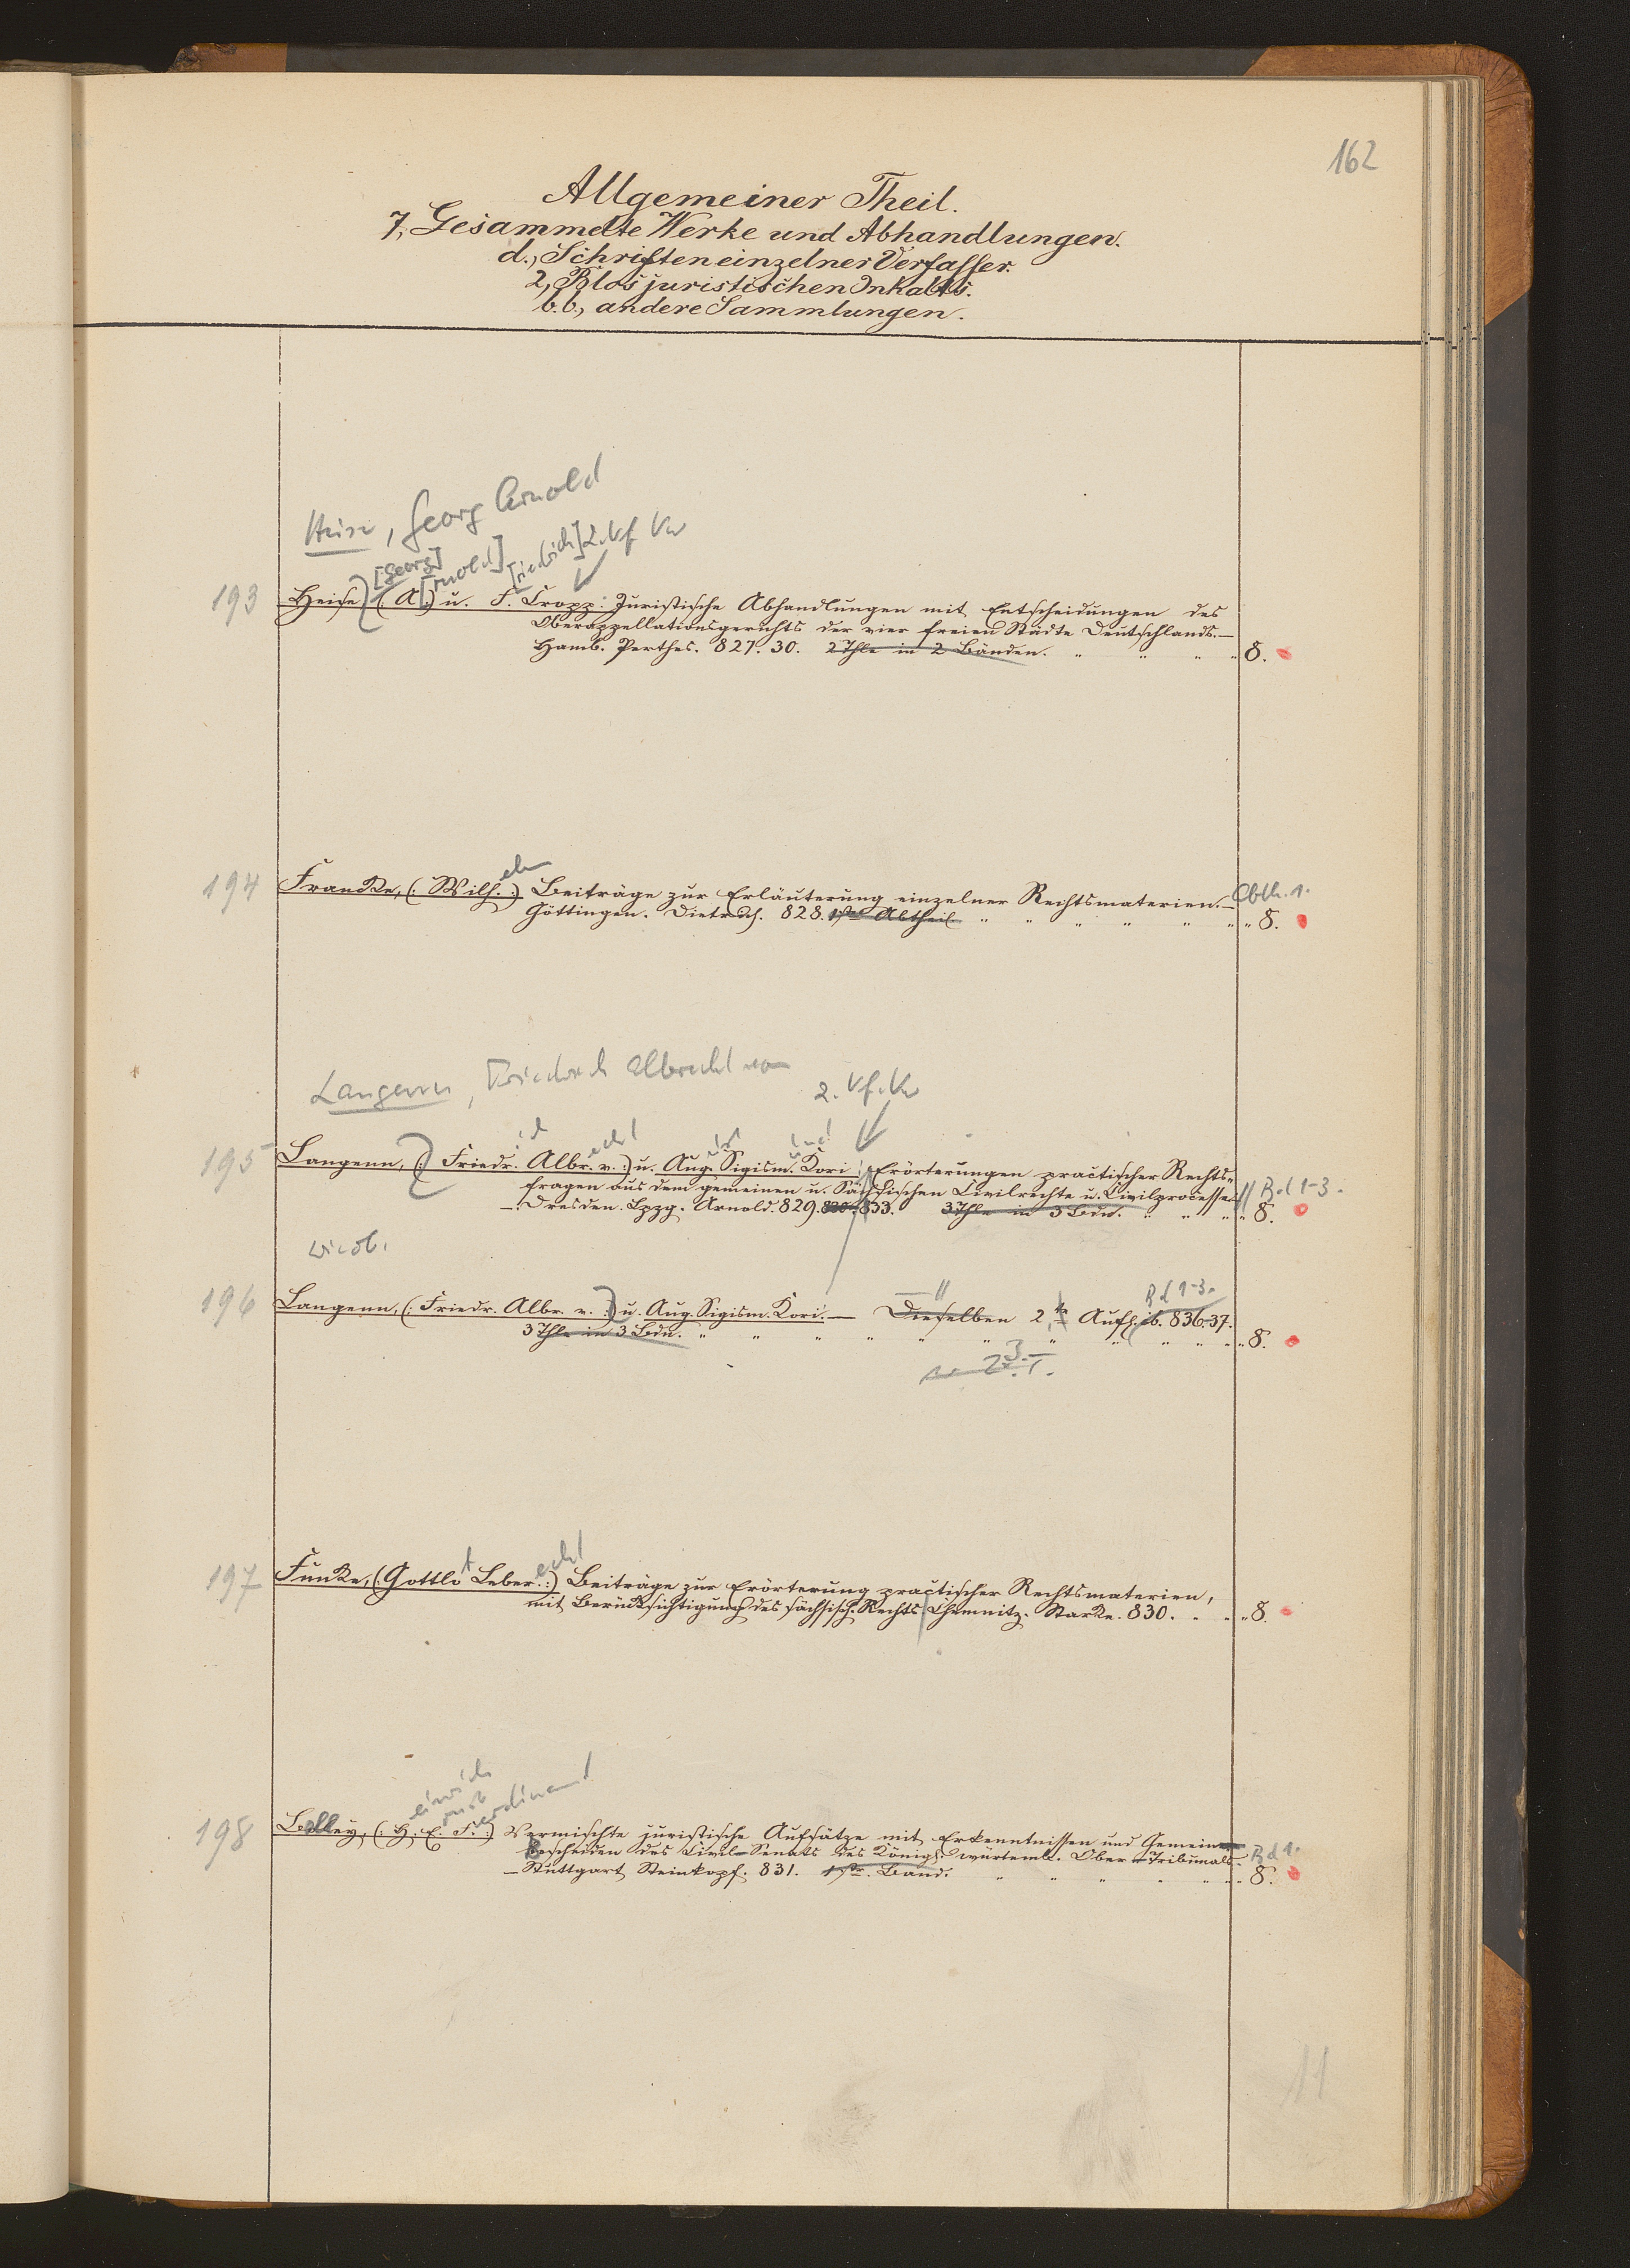 162
Allgemeiner Theil.
7, Gesammelte Werke und Abhandlungen.
d., Schriften einzelner Verfasser.
2, Blos juristischen Inhalts.
b.b., andere Sammlungen.
Heise, Georg Arnold
[Georg] [rnold] [riedrich] 2. Vf Vw
193 Heise, (: A :) u. F. Cropp: Juristische Abhandlungen mit Entscheidungen des
Oberappellationsgerichts der vier freien Städte Deutschlands. —
Hamb. Perthes. 827. 30. 2 Thle in 2 Bänden. " " " " 8.
elm
194 Francke, (: Wilh. :) Beiträge zur Erläuterung einzelner Rechtsmaterien. — Abth. 1.
Göttingen. Dietrich. 828. 1ste Abtheil. " " " " " " " 8.
Langenn, Friedrich Albrecht von
2. Vf. Vw
195 Langenn, (: Friedr. Albr. v. :) u. Aug. Sigism. Kori: Erörterungen practischer Rechts-
fragen aus dem gemeinen u. Sächsischen Civilrechte u. Civilprocesse. Bd 1-3.
— Dresden. Lpzg. Arnold. 829. 830. 833. 3 Thle in 3 Bdn. " " " " 8.
w. ob.
Bd 1-3.
196 Langenn, (: Friedr. Albr. v. :) u. Aug. Sigism. Kori. — Dieselben 2te Aufl. ib. 836-37.
3 Thle in 3 Bdn. " " " " " " " " " " " " 8.
t echt
197 Funke, (: Gottlo Leber. :) Beiträge zur Erörterung practischer Rechtsmaterien,
mit Berücksichtigung des sächsisch. Rechts Chemnitz. Starke. 830. " " " 8.
einrich
rnst
erdinand
198 Bolley, (: H. E. F. :) Vermischte juristische Aufsätze mit Erkenntnissen und Gemein-
Bescheiden des Civil-Senats des Königl. würtemb. Ober-Tribunals. Bd 1.
— Stuttgart Steinkopf. 831. 1ster Band. " " " " " " " 8.
11